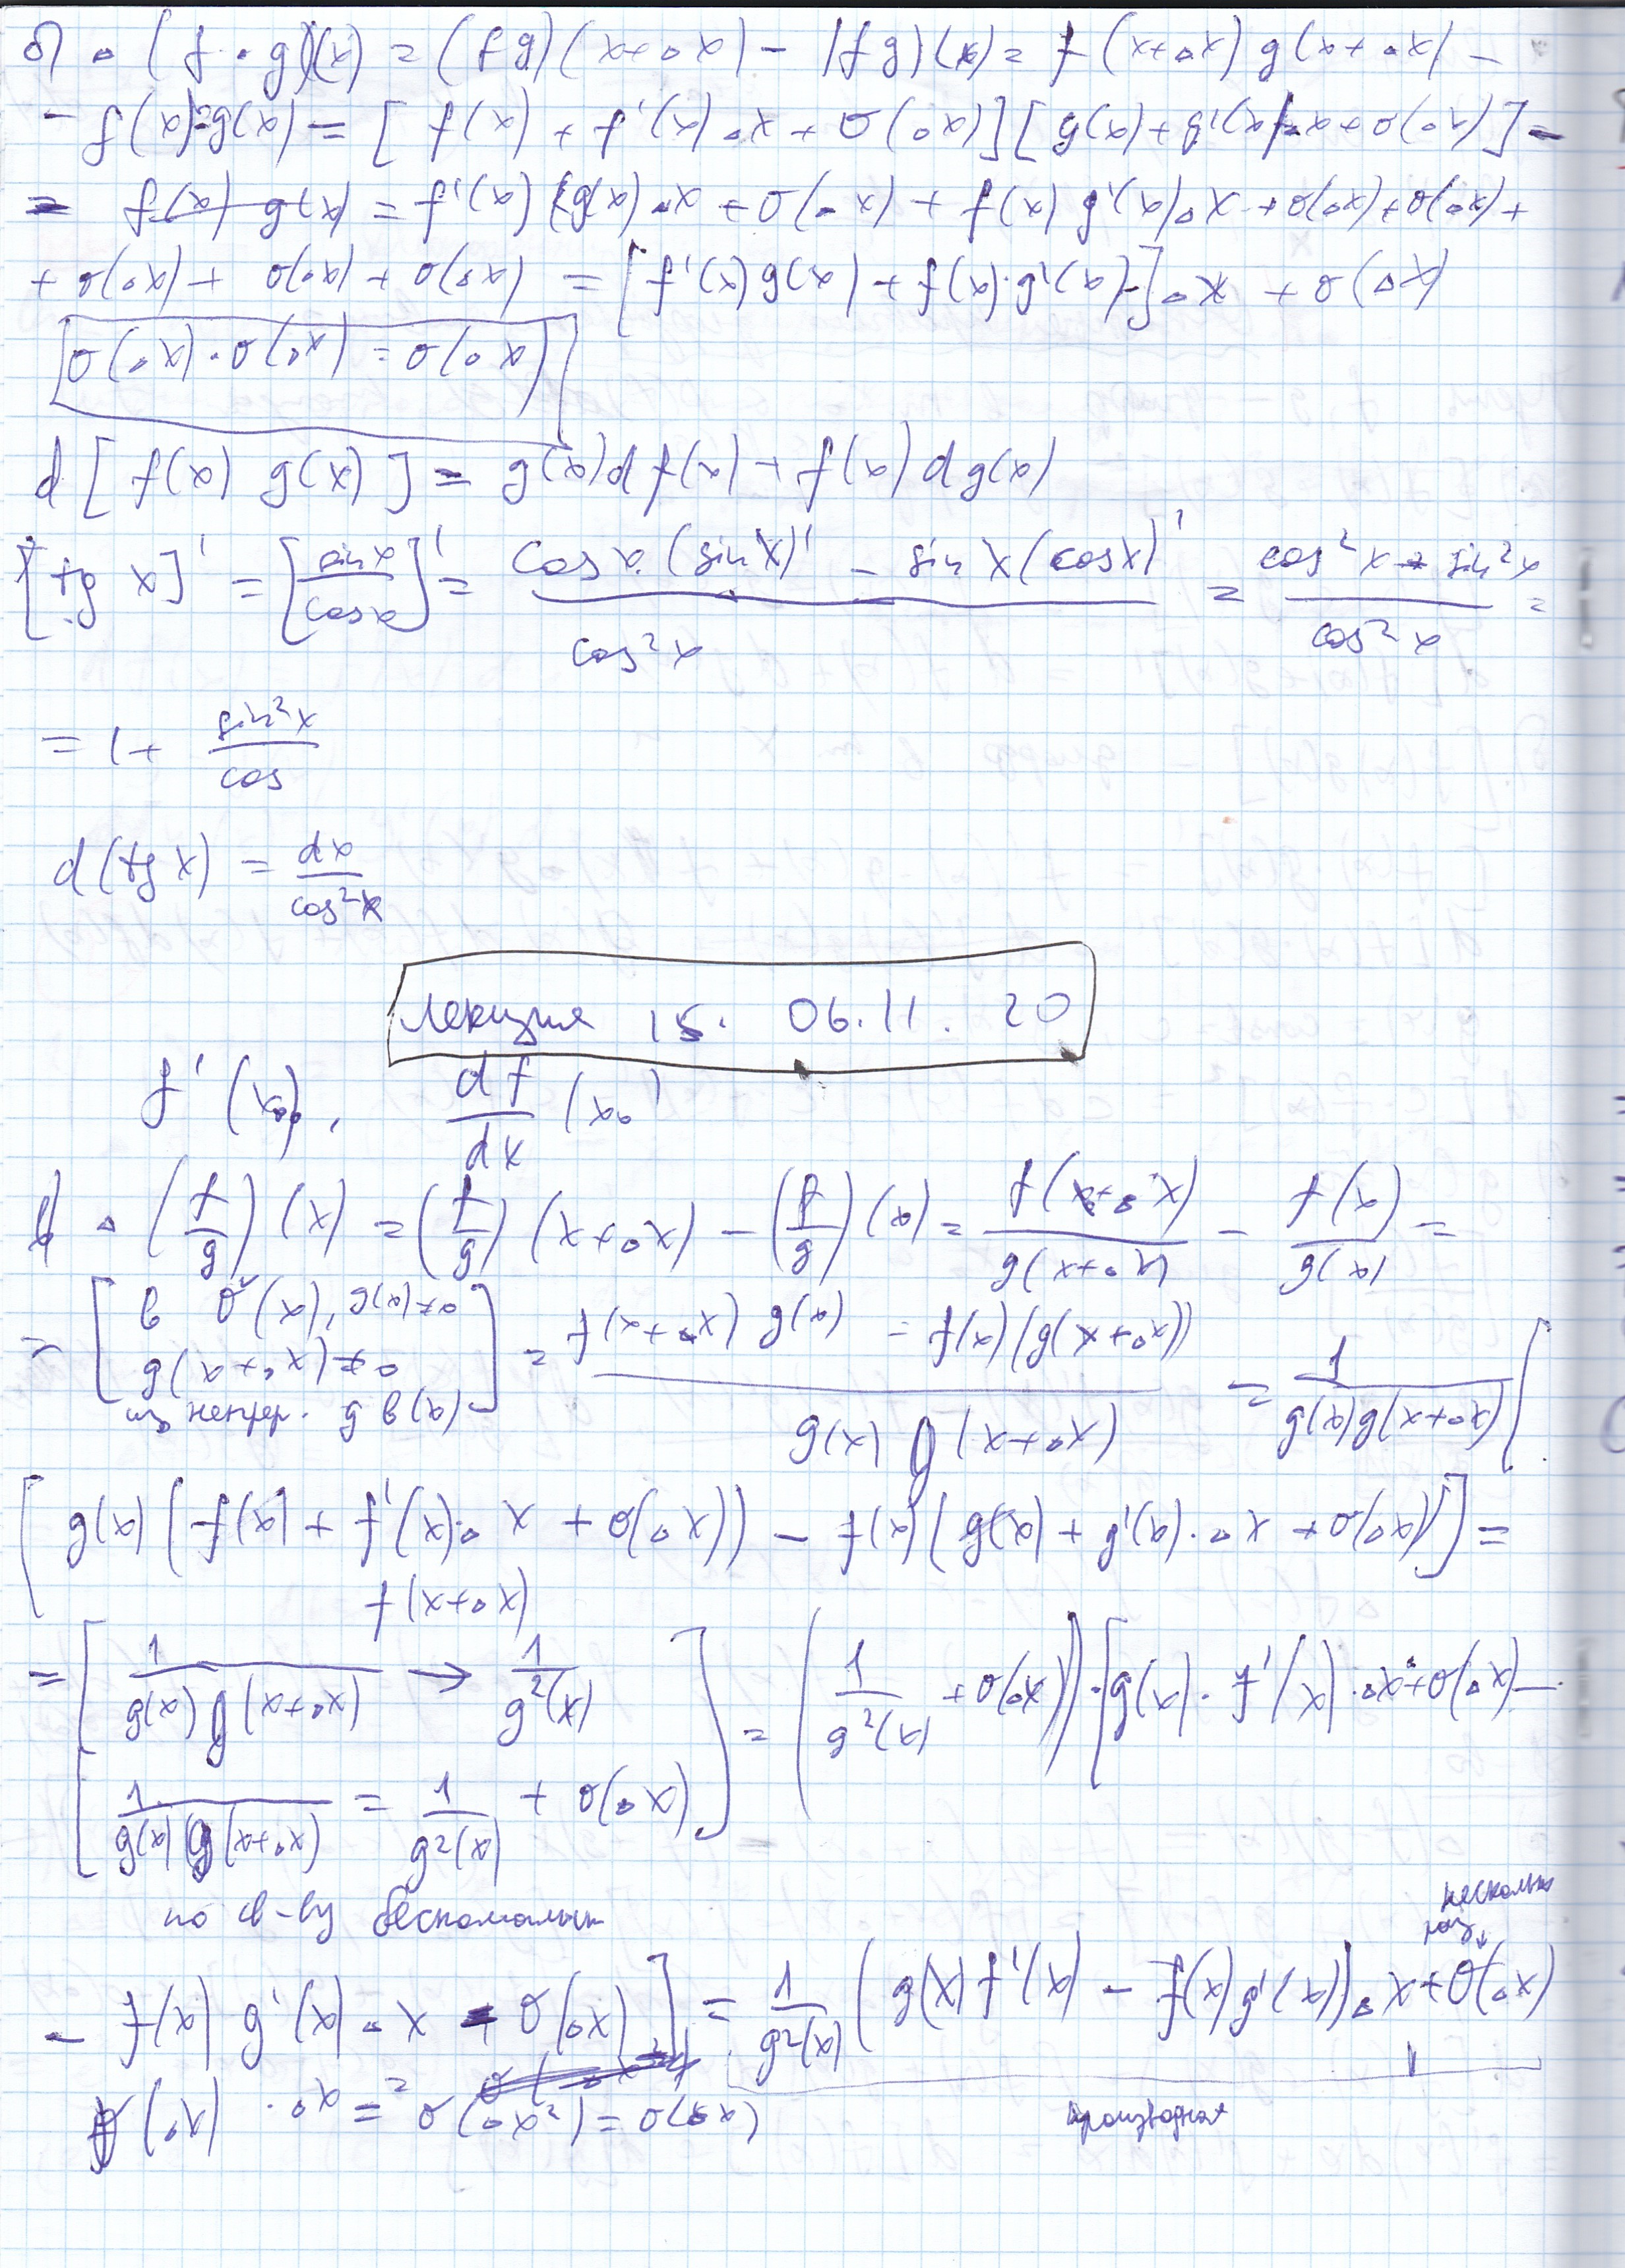 б) Δ(f·g)(x) = (fg)(x+Δx) - (fg)(x) = f(x+Δx) g(x+Δx) -
- f(x)·g(x) = [f(x) + f'(x)Δx + o(Δx)][g(x) + g'(x)Δx + o(Δx)] -
- f(x) g(x) = f'(x) g(x)Δx + o(Δx) + f(x) g'(x)Δx + o(Δx) + o(Δx) +
+ o(Δx) + o(Δx) + o(Δx) = [f'(x)g(x) + f(x)·g'(x)]Δx + o(Δx)
o(Δx)·o(Δx) = o(Δx)
d[f(x) g(x)] = g(x)d f(x) + f(x) d g(x)
[tg x]' = [sin x / cos x]' = (cos x · (sin x)' - sin x (cos x)') / cos²x = (cos²x + sin²x) / cos²x =
= 1 + sin²x / cos
d(tg x) = dx / cos²x
Лекция 15. 06.11.20
f'(x₀), df/dx (x₀)
Δ(f/g)(x) = (f/g)(x+Δx) - (f/g)(x) = f(x+Δx)/g(x+Δx) - f(x)/g(x) =
= [в U(x), g(x)≠0
g(x+Δx)≠0
из непрер. g в (x)] = (f(x+Δx) g(x) - f(x)(g(x+Δx))) / (g(x) g(x+Δx)) = 1/(g(x)g(x+Δx)) [
[g(x)(f(x) + f'(x)·Δx + o(Δx)) - f(x)(g(x) + g'(x)·Δx + o(Δx))] =
f(x+Δx)
= [1/(g(x) g(x+Δx)) → 1/g²(x)
1/(g(x) g(x+Δx)) = 1/g²(x) + o(Δx)] = (1/g²(x) + o(Δx))·[g(x)·f'(x)·Δx + o(Δx) -
по св-ву бескономалых
несколько
раз ↓
- f(x) g'(x)Δx + o(Δx)] = 1/g²(x) (g(x) f'(x) - f(x)g'(x))Δx + o(Δx)
o(Δx)·Δx = o(Δx²) = o(Δx)
производная